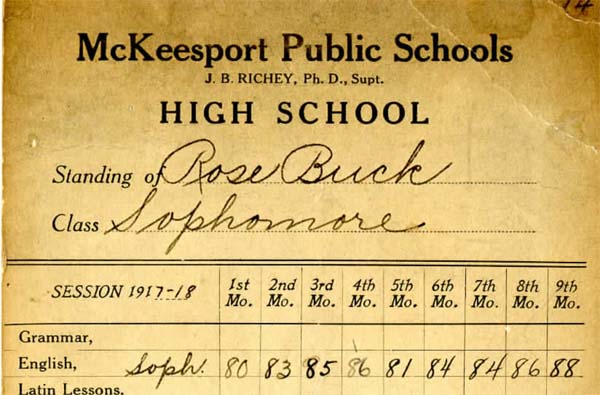 14
McKeesport Public Schools
J. B. RICHEY, Ph. D., Supt.
HIGH SCHOOL
Standing of Rose Buck
Class Sophomore
SESSION 1917-18 1st Mo. 2nd Mo. 3rd Mo. 4th Mo. 5th Mo. 6th Mo. 7th Mo. 8th Mo. 9th Mo.
Grammar,
English, Soph. 80 83 85 86 81 84 84 86 88
Latin Lessons,